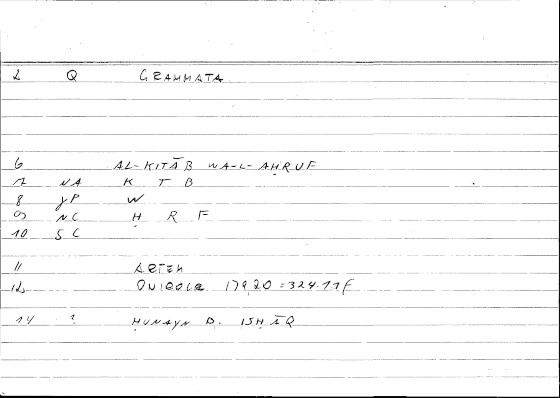 2 Q GRAMMATA
6 AL-KITĀB WA-L-AḤRUF
7 NA K T B
8 γP W
9 NC Ḥ R F
10 SC
11 ARTEM
12 ONIROCR 179,20 = 324.11F
14 ? ḤUNAYN B. ISḤĀQ